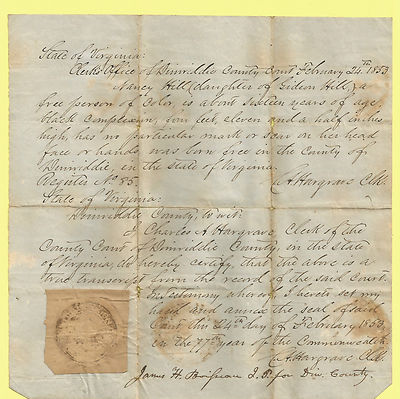 State of Virginia:
Clerks Office of Dinwiddie County Court February 24th 1853
Nancy Hill (daughter of Gideon Hill) a
free person of Color, is about sixteen years of age,
black Complexion, four feet, eleven and a half inches
high, has no particular mark or scar on her head
face or hands was born free in the County of
Dinwiddie, in the State of Virginia.
Register No. 85. C A Hargrave Clk.
State of Virginia:
Dinwiddie County, to wit:
I Charles A Hargrave Clerk of the
County Court of Dinwiddie County, in the State
of Virginia, do hereby certify, that the above is a
true transcript from the record of the said Court.
In testimony whereof, I hereto set my
hand and annex the seal of said
Court this 24th day of February 1853.
in the 77th year of the Commonwealth.
C A Hargrave Clk.
James H. J. P. for Din. County.